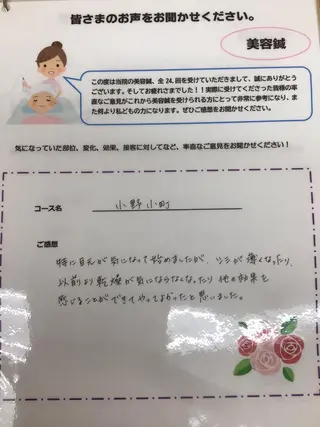 皆さまのお声をお聞かせください。
美容鍼
この度は当院の美容鍼、全24.回を受けていただきまして、誠にありがとう
ございます。そしてお疲れさまでした！！実際に受けてくださった皆様の率
直なご意見がこれから美容鍼を受けられる方にとって非常に参考になり、ま
た何より私どもの力になります。ぜひご感想をお聞かせください。
気になっていた部位、変化、効果、接客に対してなど、率直なご意見をお聞かせください！
コース名 小野小町
ご感想
特に目元が気になって始めましたが、シミが薄くなったり、
以前より乾燥が気にならなくなったり他の効果も
感じることができてやってよかったと思いました。